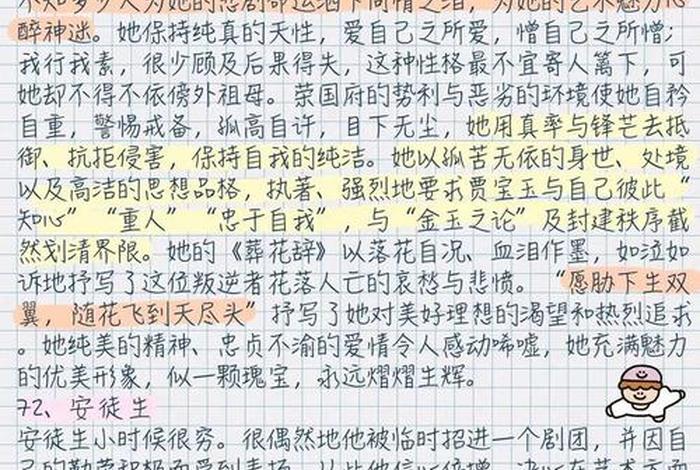 不知多少人为她的悲剧命运洒下同情之泪，为她的艺术魅力心
醉神迷。她保持纯真的天性，爱自己之所爱，憎自己之所憎；
我行我素，很少顾及后果得失，这种性格最不宜寄人篱下，可
她却不得不依傍外祖母。荣国府的势利与恶劣的环境使她自矜
自重，警惕戒备，孤高自许，目下无尘，她用真率与锋芒去抵
御、抗拒侵害，保持自我的纯洁。她以孤苦无依的身世、处境
以及高洁的思想品格，执著、强烈地要求贾宝玉与自己彼此“
知心”“重人”“忠于自我”，与“金玉之论”及封建秩序截
然划清界限。她的《葬花辞》以落花自况、血泪作墨，如泣如
诉地抒写了这位叛逆者花落人亡的哀愁与悲愤。“愿胁下生双
翼，随花飞到天尽头”抒写了她对美好理想的渴望和热烈追求
。她纯美的精神、忠贞不渝的爱情令人感动唏嘘，她充满魅力
的优美形象，似一颗瑰宝，永远熠熠生辉。
72、安徒生
安徒生小时候很穷。很偶然地他被临时招进一个剧团，并因自